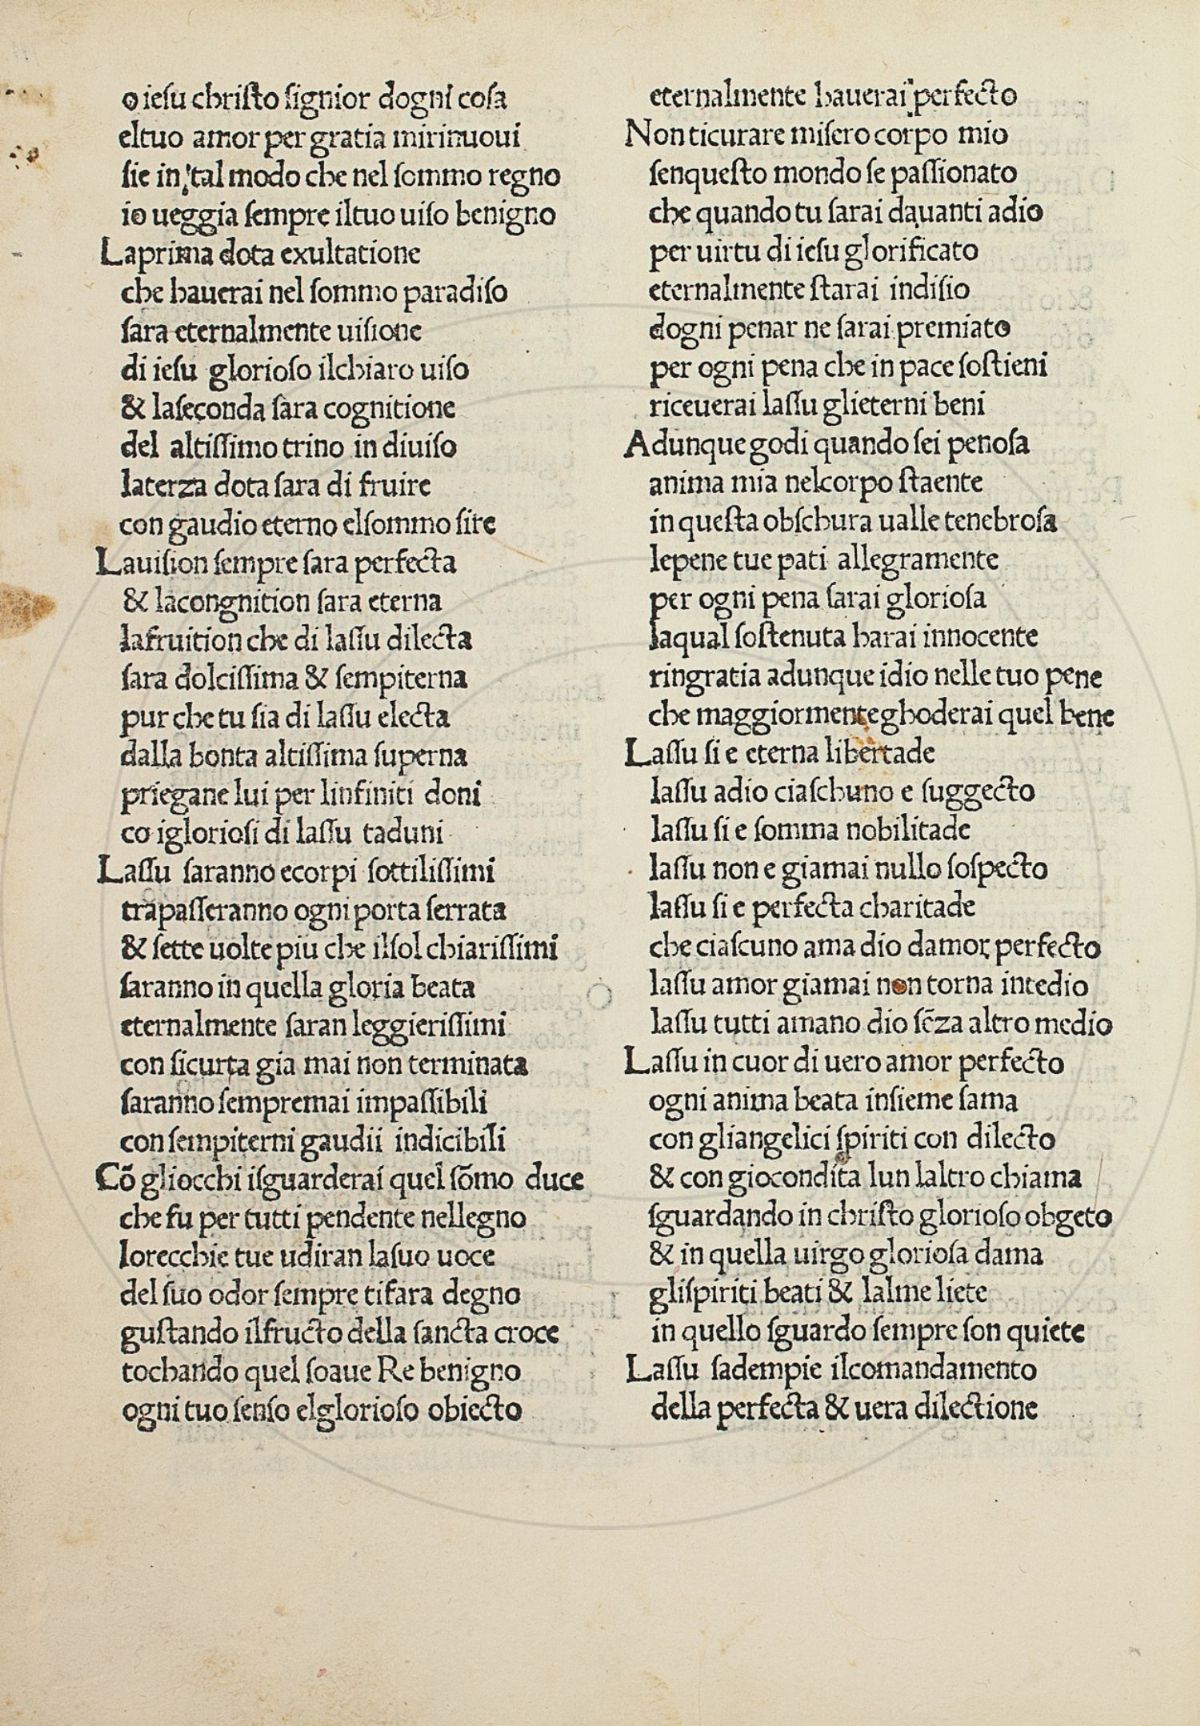 o iesu christo signior dogni cosa
eltuo amor per gratia mirinuoui
sie in tal modo che nel sommo regno
io ueggia sempre iltuo uiso benigno
Laprima dota exultatione
che hauerai nel sommo paradiso
sara eternalmente uisione
di iesu glorioso ilchiaro uiso
& laseconda sara cognitione
del altissimo trino in diuiso
laterza dota sara di fruire
con gaudio eterno elsommo sire
Lauision sempre sara perfecta
& lacongnition sara eterna
lafruition che di lassu dilecta
sara dolcissima & sempiterna
pur che tu sia di lassu electa
dalla bonta altissima superna
priegane lui per linfiniti doni
co igloriosi di lassu taduni
Lassu saranno ecorpi sottilissimi
trapasseranno ogni porta serrata
& sette uolte piu che ilsol chiarissimi
saranno in quella gloria beata
eternalmente saran leggierissimi
con sicurta gia mai non terminata
saranno sempremai impassibili
con sempiterni gaudii indicibili
Cõ gliocchi isguarderai quel sõmo duce
che fu per tutti pendente nellegno
lorecchie tue udiran lasuo uoce
del suo odor sempre tifara degno
gustando ilfructo della sancta croce
tochando quel soaue Re benigno
ogni tuo senso elglorioso obiecto
eternalmente hauerai perfecto
Non ticurare misero corpo mio
senquesto mondo se passionato
che quando tu sarai dauanti adio
per uirtu di iesu glorificato
eternalmente starai indisio
dogni penar ne sarai premiato
per ogni pena che in pace sostieni
riceuerai lassu glieterni beni
Adunque godi quando sei penosa
anima mia nelcorpo staente
in questa obschura ualle tenebrosa
lepene tue pati allegramente
per ogni pena sarai gloriosa
laqual sostenuta harai innocente
ringratia adunque idio nelle tuo pene
che maggiormente ghoderai quel bene
Lassu si e eterna libertade
lassu adio ciaschuno e suggecto
lassu si e somma nobilitade
lassu non e giamai nullo sospecto
lassu si e perfecta charitade
che ciascuno ama dio damor perfecto
lassu amor giamai non torna intedio
lassu tutti amano dio sẽza altro medio
Lassu in cuor di uero amor perfecto
ogni anima beata insieme sama
con gliangelici spiriti con dilecto
& con giocondita lun laltro chiama
sguardando in christo glorioso obgeto
& in quella uirgo gloriosa dama
glispiriti beati & lalme liete
in quello sguardo sempre son quiete
Lassu sadempie ilcomandamento
della perfecta & uera dilectione